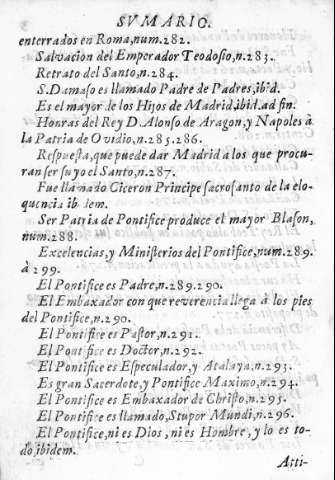 SVMARIO.
enterrados en Roma,num.282.
Salvacion del Emperador Teodosio,n.283.
Retrato del Santo,n.284.
S.Damaso es llamado Padre de Padres,ibid.
Es el mayor de los Hijos de Madrid,ibid.ad fin.
Honras del Rey D.Alonso de Aragon,y Napoles à
la Patria de Ovidio,n.285.286.
Respuesta,que puede dar Madrid a los que procu-
ran ser suyo el Santo,n.287.
Fue llamado Ciceron Principe sacrosanto de la elo-
quencia ibidem.
Ser Patria de Pontifice produce el mayor Blason,
num.288.
Excelencias,y Ministerios del Pontifice,num.289.
à 299.
El Pontifice es Padre,n.289.290.
El Embaxador con que reverencia llega à los pies
del Pontifice,n.290.
El Pontifice es Pastor,n.291.
El Pontifice es Doctor,n.292.
El Pontifice es Especulador,y Atalaya,n.293.
Es gran Sacerdote,y Pontifice Maximo,n.294.
El Pontifice es Embaxador de Christo,n.295.
El Pontifice es llamado,Stupor Mundi,n.296.
El Pontifice,ni es Dios,ni es Hombre,y lo es to-
do ibidem.
Atti-